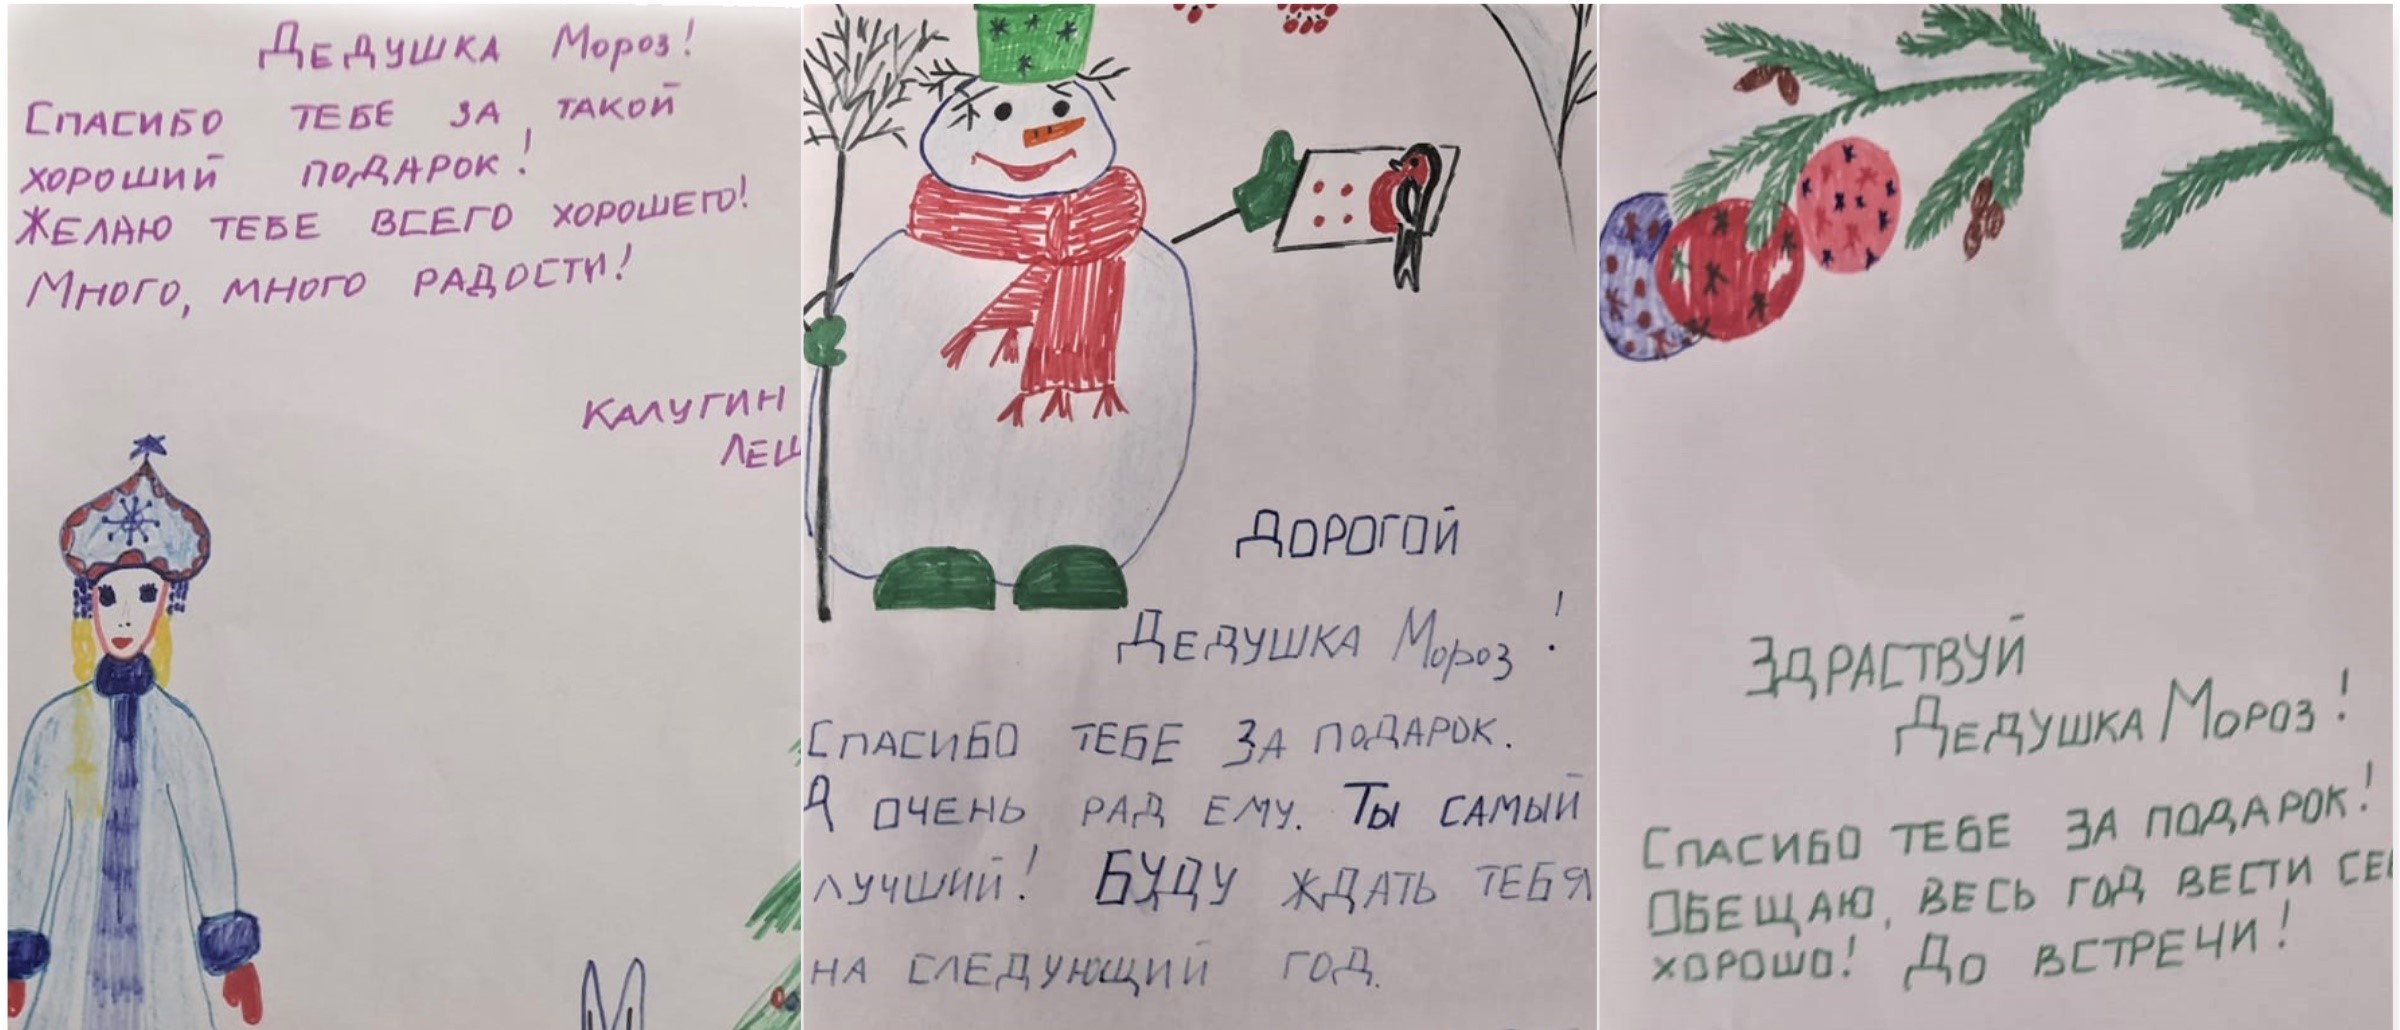 Дедушка Мороз!
Спасибо тебе за такой
хороший подарок!
Желаю тебе всего хорошего!
Много, много радости!
Калугин
Леш
Дорогой
Дедушка Мороз!
Спасибо тебе за подарок.
Я очень рад ему. Ты самый
лучший! Буду ждать тебя
на следующий год.
Здраствуй
Дедушка Мороз!
Спасибо тебе за подарок!
Обещаю, весь год вести се
хорошо! До встречи!